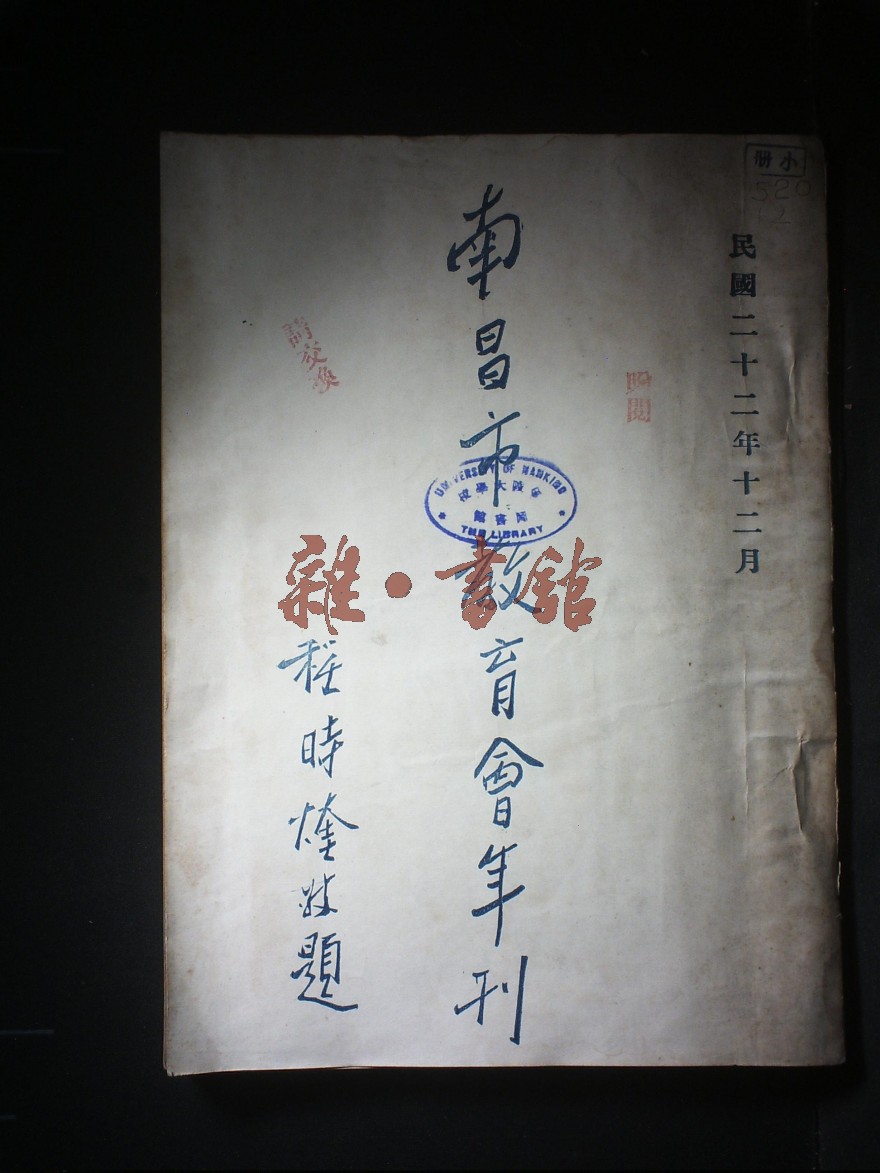 小册
520
民國二十二年十二月
贈閱
南昌市教育會年刊
UNIVERSITY OF NANKING
金陵大學校
圖書館
THE LIBRARY
請交換
程時煃敬題
雜·書館